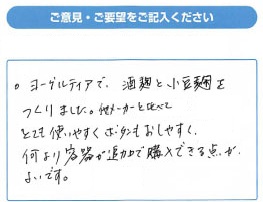 ご意見・ご要望をご記入ください
。ヨーグルティアで、酒麹と小豆麹を
つくりました。他メーカーと比べて
とても使いやすくボタンもおしやすく、
何より容器が追加で購入できる点が、
よいです。